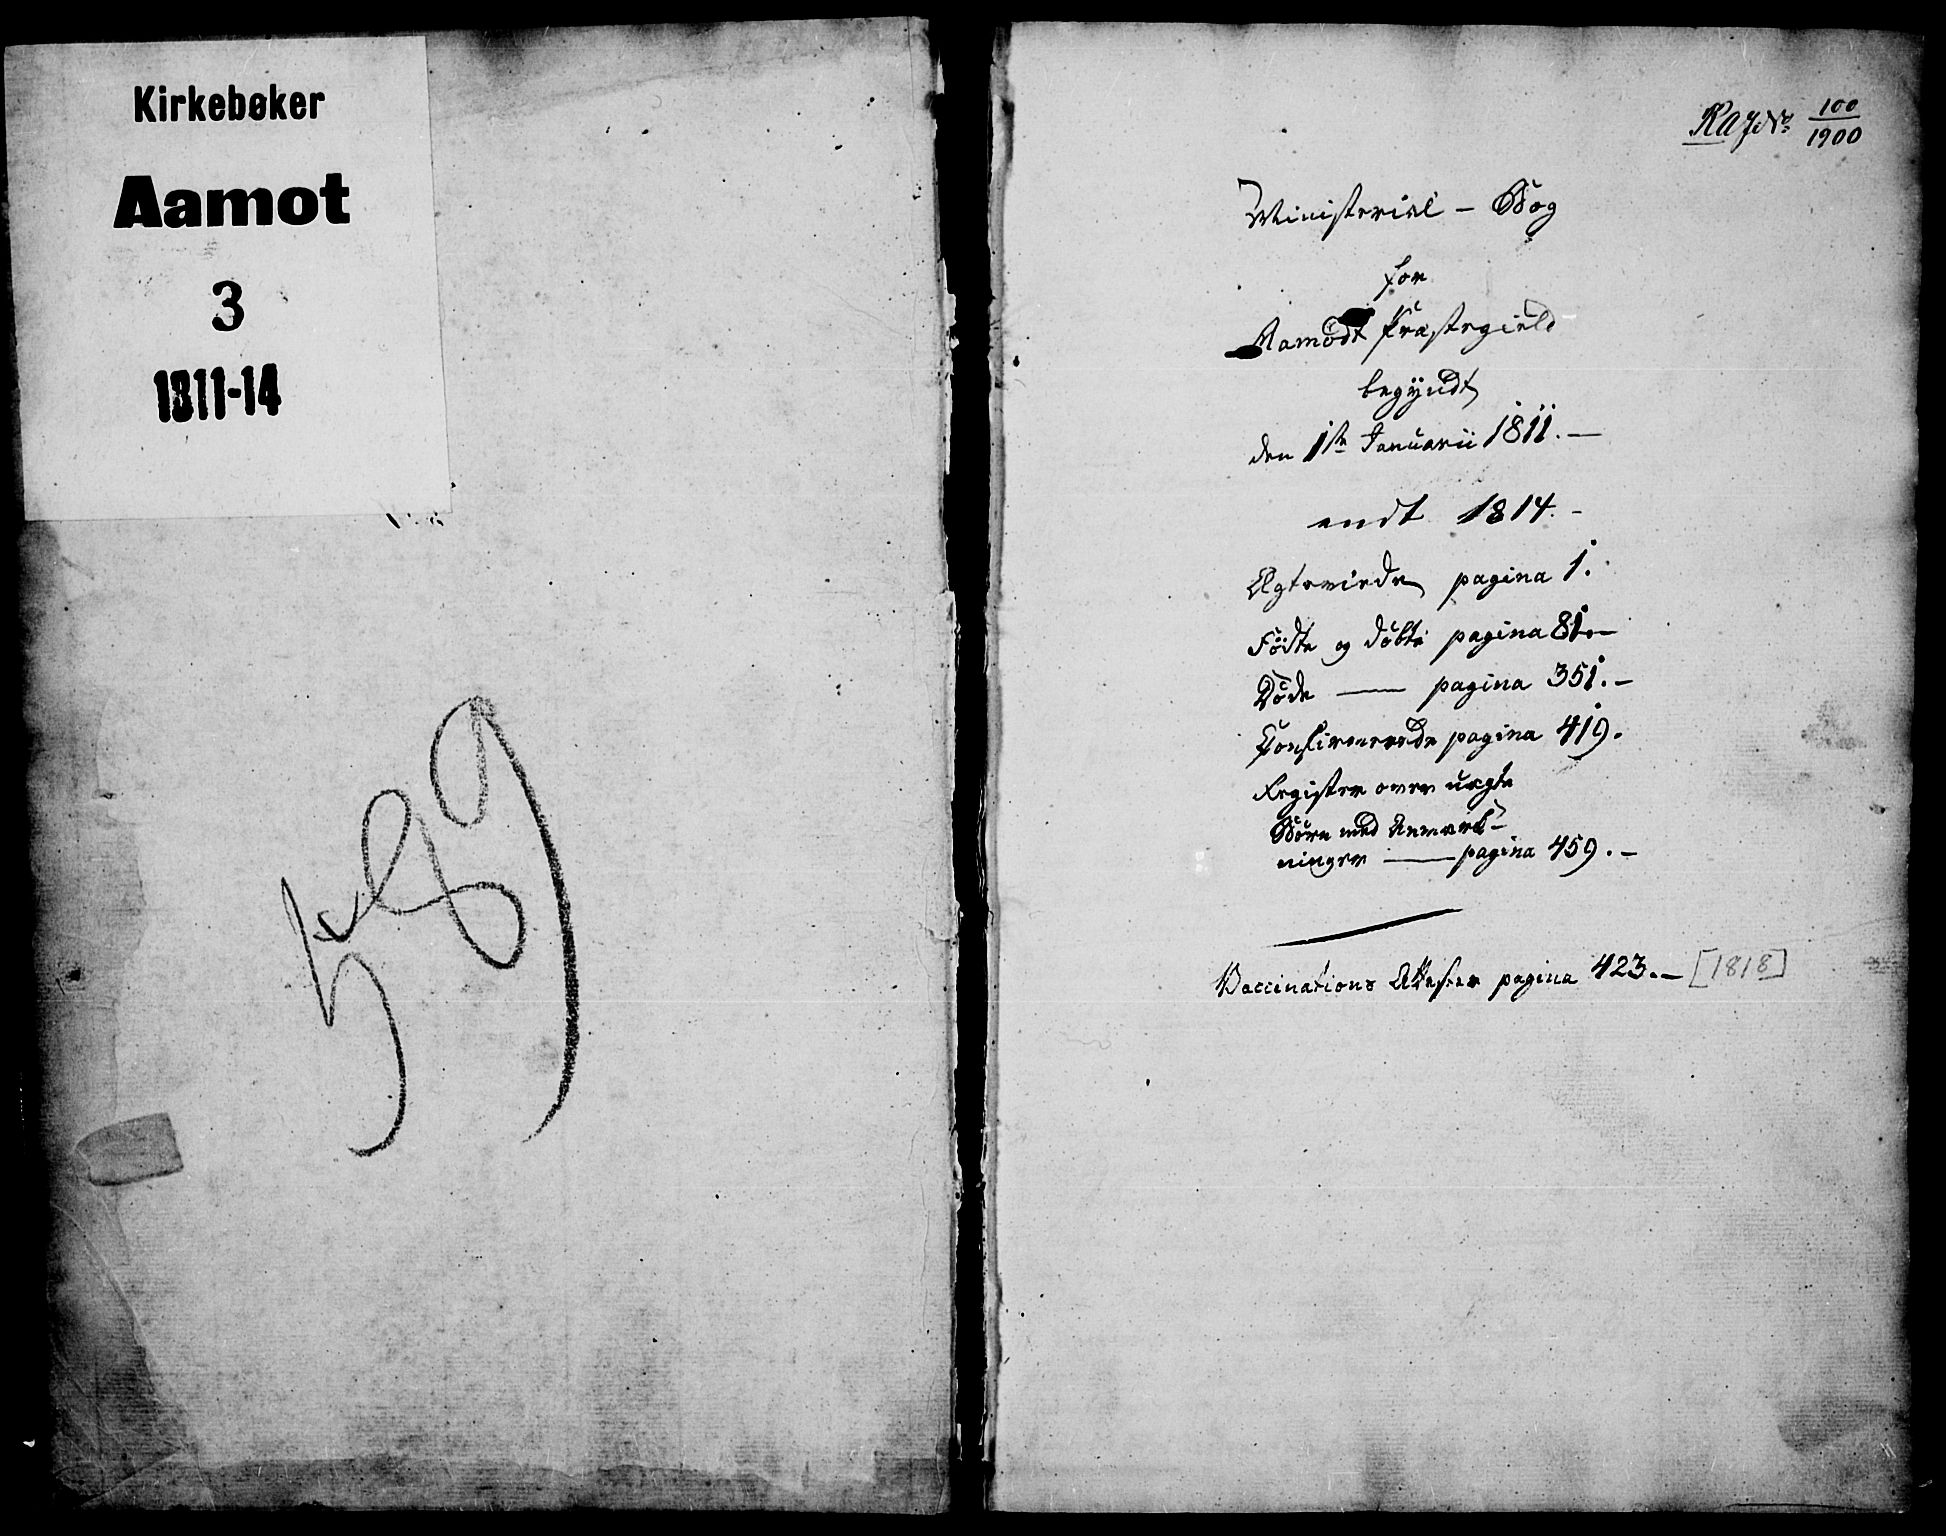 Kirkebøker
Aamot
3
1811-14
RAJ.No. 100/1900
Ministerial - Bog
for
Aamodt Præstegield
begyndt
den 1ste Januarii 1811. —
endt 1814. -
Ægteviede pagina 1.
Födte og döbte pagina 81. —
Döde — pagina 351. —
Confirmerede pagina 419.
Register over uægte
Börn med Anmærk-
ninger — pagina 459. —
Vaccinations Attester pagina 423. — [1818]